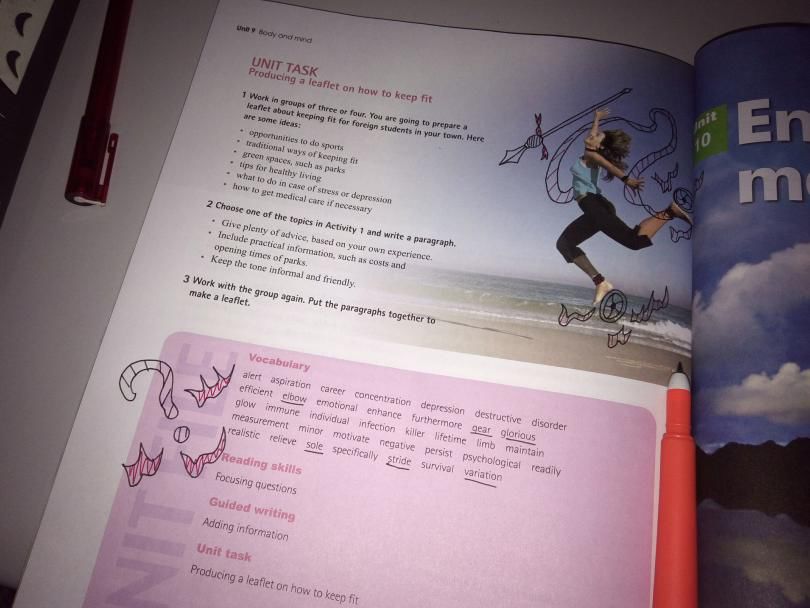 Unit 9 Body and mind
UNIT TASK
Producing a leaflet on how to keep fit
1 Work in groups of three or four. You are going to prepare a
leaflet about keeping fit for foreign students in your town. Here
are some ideas:
• opportunities to do sports
• traditional ways of keeping fit
• green spaces, such as parks
• tips for healthy living
• what to do in case of stress or depression
• how to get medical care if necessary
2 Choose one of the topics in Activity 1 and write a paragraph.
• Give plenty of advice, based on your own experience.
• Include practical information, such as costs and
opening times of parks.
• Keep the tone informal and friendly.
3 Work with the group again. Put the paragraphs together to
make a leaflet.
UNIT FILE
Vocabulary
alert aspiration career concentration depression destructive disorder
efficient elbow emotional enhance furthermore gear glorious
glow immune individual infection killer lifetime limb maintain
measurement minor motivate negative persist psychological readily
realistic relieve sole specifically stride survival variation
Reading skills
Focusing questions
Guided writing
Adding information
Unit task
Producing a leaflet on how to keep fit
Unit
10